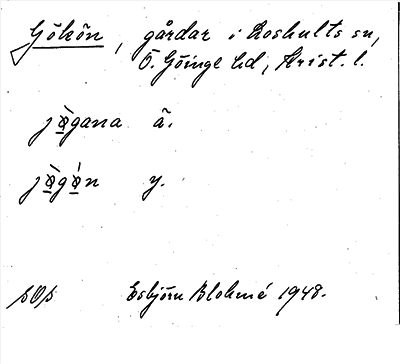 Gökön, gårdar i Loshults sn,
Ö. Göinge hd, Krist. l.
jø̀gana ä.
jø̀gǿn y.
sOs Esbjörn Blohmé 1948.